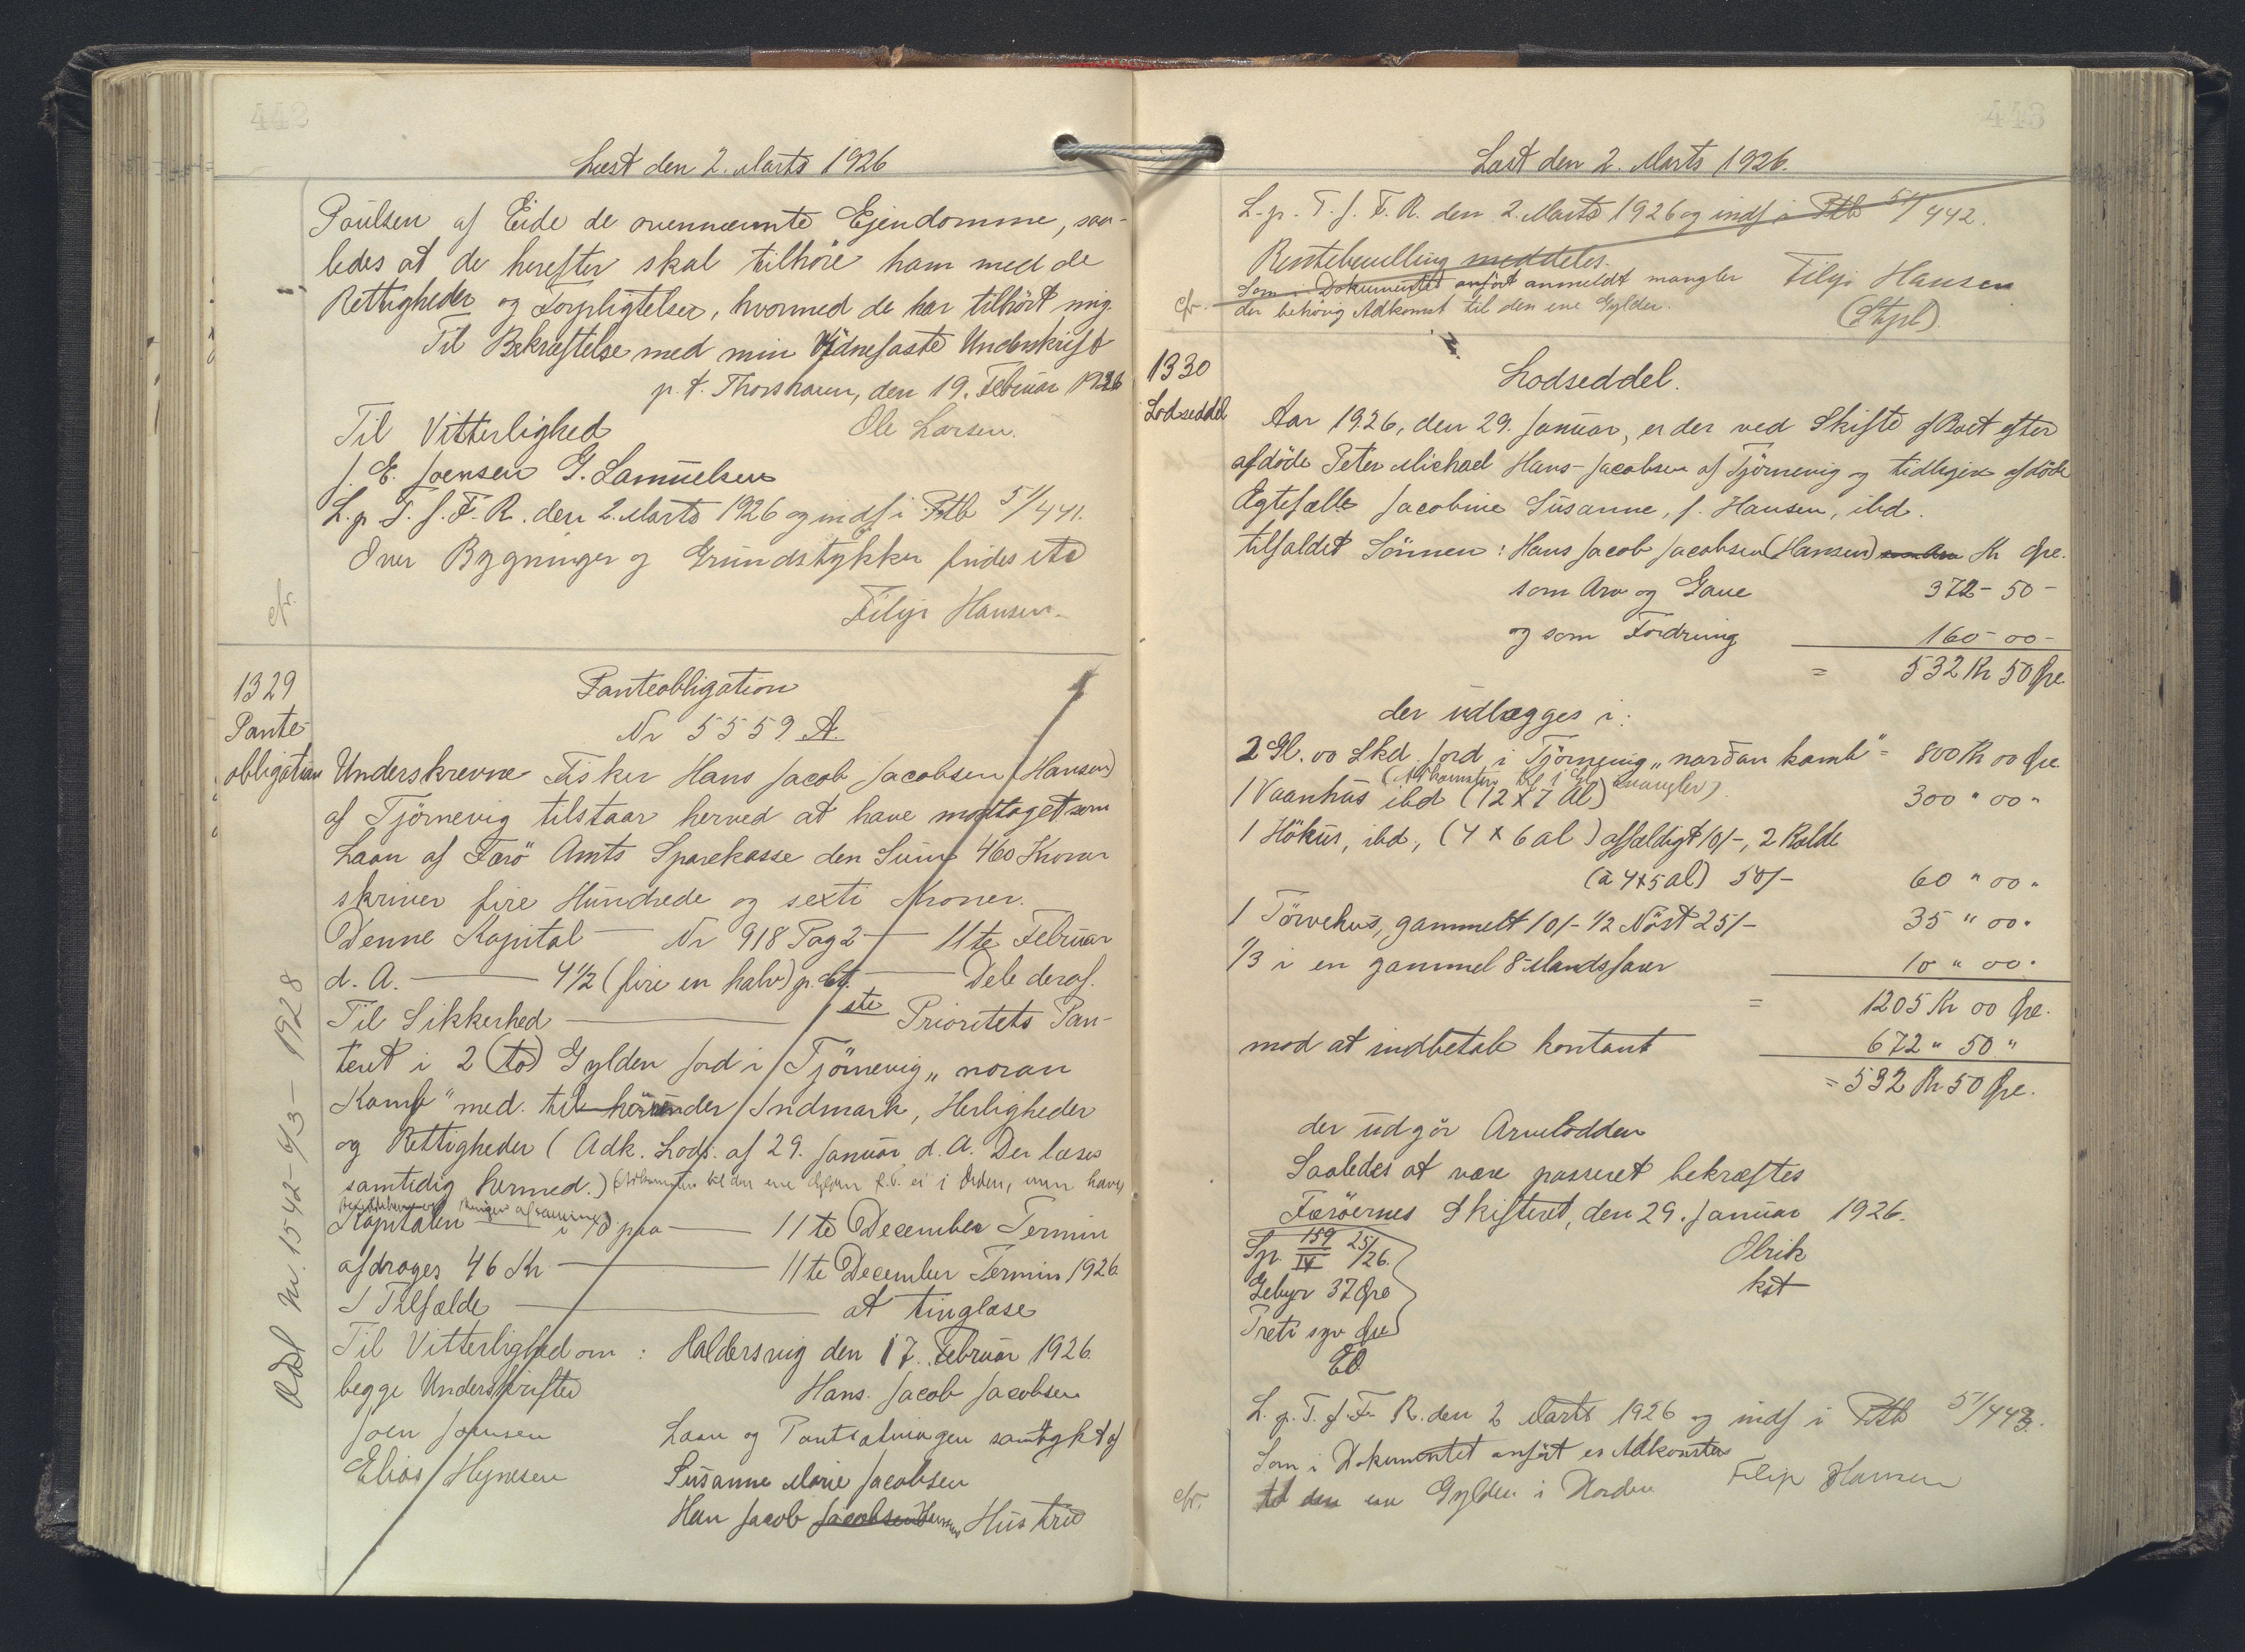 442
Læst den 2. Marts 1926
Poulsen af Eide de ovennævnte Ejendomme, saa-
ledes at de herefter skal tilhöre ham med de
Rettigheder og Forpligtelser, hvormed de har tilhört mig.
Til Bekræftelse med min Vidnefaste Underskrift
p. t. Thorshavn, den 19. Februar 1926
Til Vitterlighed Ole Larsen.
J. E. Joensen G. Samuelsen
L. p. T. f. F. R. den 2. Marts 1926 og indf i Ptb 51/441.
Over Bygninger og Grundstykker findes ite
cfr. Filip Hansen.
1329
Pante-
obligation
Panteobligation
Nr 5559 A.
Underskrevne Fisker Hans Jacob Jacobsen (Hansen)
af Tjörnevig tilstaar herved at have modtaget som
Laan af Færö Amts Sparekasse den Sum 460 Kroner
skriver fire Hundrede og sexti Kroner.
Denne Kapital — Nr 918 Pag 2 — 11te Februar
d. A. — 4 1/2 (fire en halv) p. Ct. — Dele deraf.
Til Sikkerhed — ste Prioritets Pan-
teret i 2 (to) Gylden Jord i Tjörnevig „noran
Kamb" med til hörender Indmark, Herligheder
og Rettigheder (Adk. Lods. af 29. Januar d. A. Der læses
samtidig hermed.) (Adkomsten til den ene Gylden er ei i Orden, men haves
Kapitalen i 10 paa — 11te December Termin
afdrages 46 Kr — 11te December Termin 1926.
I Tilfælde — at tinglæse
Til Vitterlighed om : Haldersvig den 17. Februar 1926.
begge Underskrifter Hans Jacob Jacobsen
Joen Joensen Laan og Pantsætningen samtykt af
Elias Hejnesen Susanne Marie Jacobsen
Han Jacob Jacobsen Hansens Hustru
Udsl Nr. 1542-6/3-1928
443
Læst den 2. Marts 1926.
L. p. T. f. F. R. den 2. Marts 1926 og indf i Ptb 51/442.
Rentebevilling meddeles.
Som i Dokumentet anfört anmeldt mangler Filip Hansen
cfr. der behörig Adkomst til den ene Gylden. (Stpl).
1330
Lodseddel
Lodseddel.
Aar 1926, den 29. Januar, er der ved Skifte af Boet efter
afdöde Peter Michael Hans-Jacobsen af Tjörnevig og tidligere afdöde
Ægtefælle Jacobine Susanne, f. Hansen, ibd.
tilfaldet Sönnen : Hans Jacob Jacobsen (Hansen) som Arv Kr Öre.
som Arv og Gave 372 - 50 -
og som Fordring 160 - 00 -
= 532 Kr 50 Öre
der udlægges i :
2 Gl. 00 Skd Jord i Tjörnevig „narðan kamb" = 800 Kr 00 Öre
1 Vaanhus ibd (12 x 7 Al) 300 " 00 "
1 Hökus, ibd., (4 x 6 al) affældigt 10/-, 2 Kolde
(à 4x5 al) 50/- 60 " 00 "
1 Törvehus, gammelt 10/- 1/2 Nöst 25/- 35 " 00 "
1/3 i en gammel 8 Mandsfarer 10 " 00 "
= 1205 Kr 00 Öre.
mod at indbetale kontant 672 " 50 "
= 532 Kr 50 Öre.
der udgör Arvelodden
Saaledes at være passeret bekræftes
Færöernes Skifteret, den 29. Januar 1926.
Sp. 159/IV 25/26. Olrik
Gebyr 37 Öre kst
Treti syv Öre
EO
L. p. T. f. F. R. den 2 Marts 1926 og indf i Ptb 51/443.
Som i Dokumentet anfört er Adkomsten
cfr. til den ene Gylden i Uorden Filip Hansen